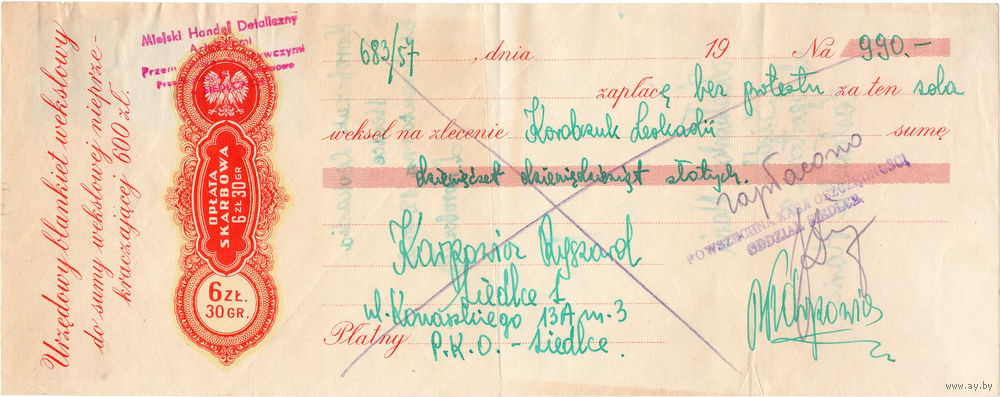 Urzędowy blankiet wekslowy
do sumy wekslowej nieprze-
kraczającej 600 zł.
Miejski Handel Detaliczny
OPŁATA
SKARBOWA
6 ZŁ 30 GR
6 ZŁ.
30 GR.
683/57 , dnia 19 Na 990.-
zapłacę bez protestu za ten sola
weksel na zlecenie Korobczuk Leokadii sumę
dziewięćset dziewięćdziesiąt złotych.
zapłacono
POWSZECHNA KASA OSZCZĘDNOŚCI
ODDZIAŁ SIEDLCE
Karpowicz Ryszard
Siedlce
ul. Konarskiego 13A m. 3
Płatny P.K.O. - Siedlce.
www.ay.by